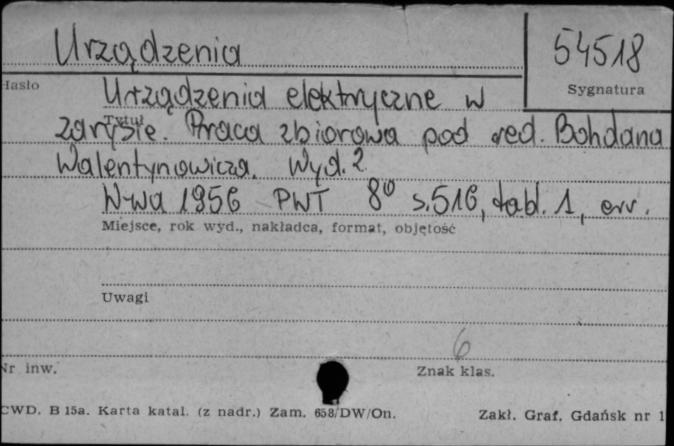 Urządzenia
54518
Hasło
Sygnatura
Urządzenia elektryczne w
Tytuł
zarysie. Praca zbiorowa pod red. Bohdana
Walentynowicza. Wyd. 2
W-wa 1956 PWT 8⁰ s. 516, tabl. 1, err.
Miejsce, rok wyd., nakładca, format, objętość
Uwagi
6
Nr inw.
Znak klas.
CWD. B 15a. Karta katal. (z nadr.) Zam. 658/DW/On.
Zakł. Graf. Gdańsk nr 1